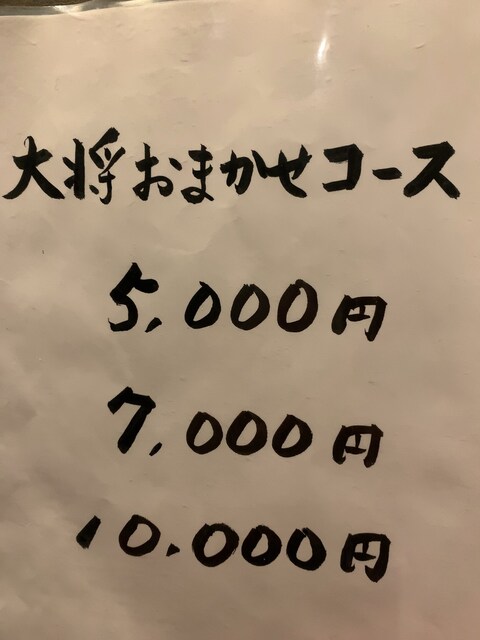 大将おまかせコース
5,000円
7,000円
10.000円